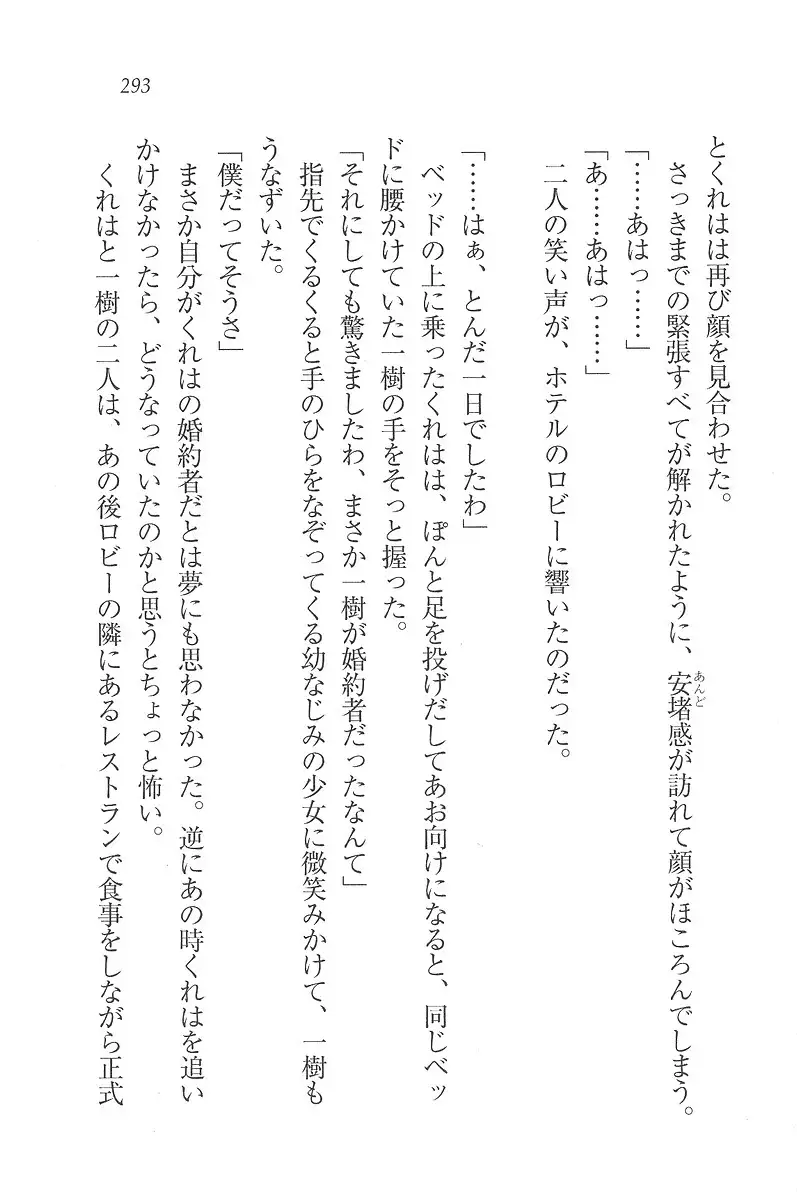 293
とくれはは再び顔を見合わせた。
さっきまでの緊張すべてが解かれたように、安堵感が訪れて顔がほころんでしまう。
あんど
「……あはっ……」
「あ……あはっ……」
二人の笑い声が、ホテルのロビーに響いたのだった。
「……はぁ、とんだ一日でしたわ」
ベッドの上に乗ったくれはは、ぽんと足を投げだしてあお向けになると、同じベッ
ドに腰かけていた一樹の手をそっと握った。
「それにしても驚きましたわ、まさか一樹が婚約者だったなんて」
指先でくるくると手のひらをなぞってくる幼なじみの少女に微笑みかけて、一樹も
うなずいた。
「僕だってそうさ」
まさか自分がくれはの婚約者だとは夢にも思わなかった。逆にあの時くれはを追い
かけなかったら、どうなっていたのかと思うとちょっと怖い。
くれはと一樹の二人は、あの後ロビーの隣にあるレストランで食事をしながら正式